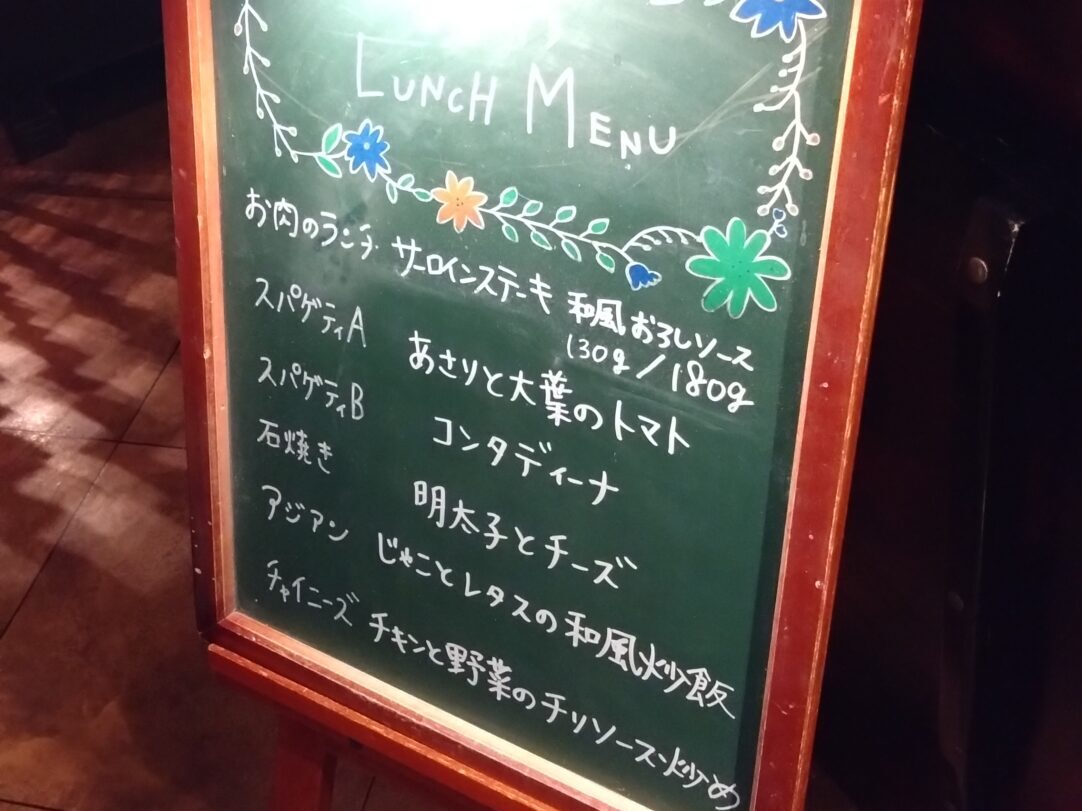 LUNCH MENU
お肉のランチ・サーロインステーキ 和風おろしソース
130g/180g
スパゲティA あさりと大葉のトマト
スパゲティB コンタディーナ
石焼き 明太子とチーズ
アジアン じゃことレタスの和風炒飯
チャイニーズ チキンと野菜のチリソース炒め